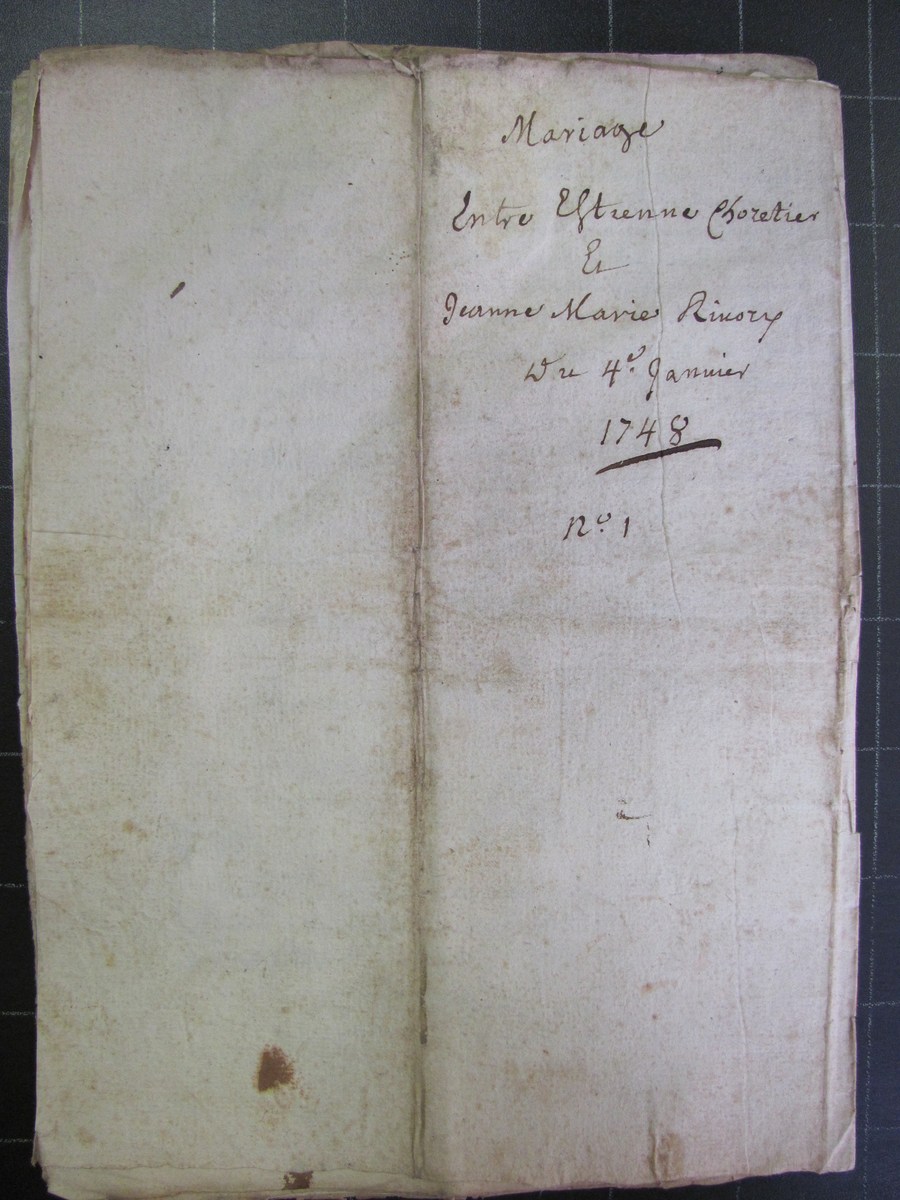 Mariage
Entre Estienne Choretier
Et
Jeanne Marie Rivory
Du 4e. Janvier
1748
No. 1